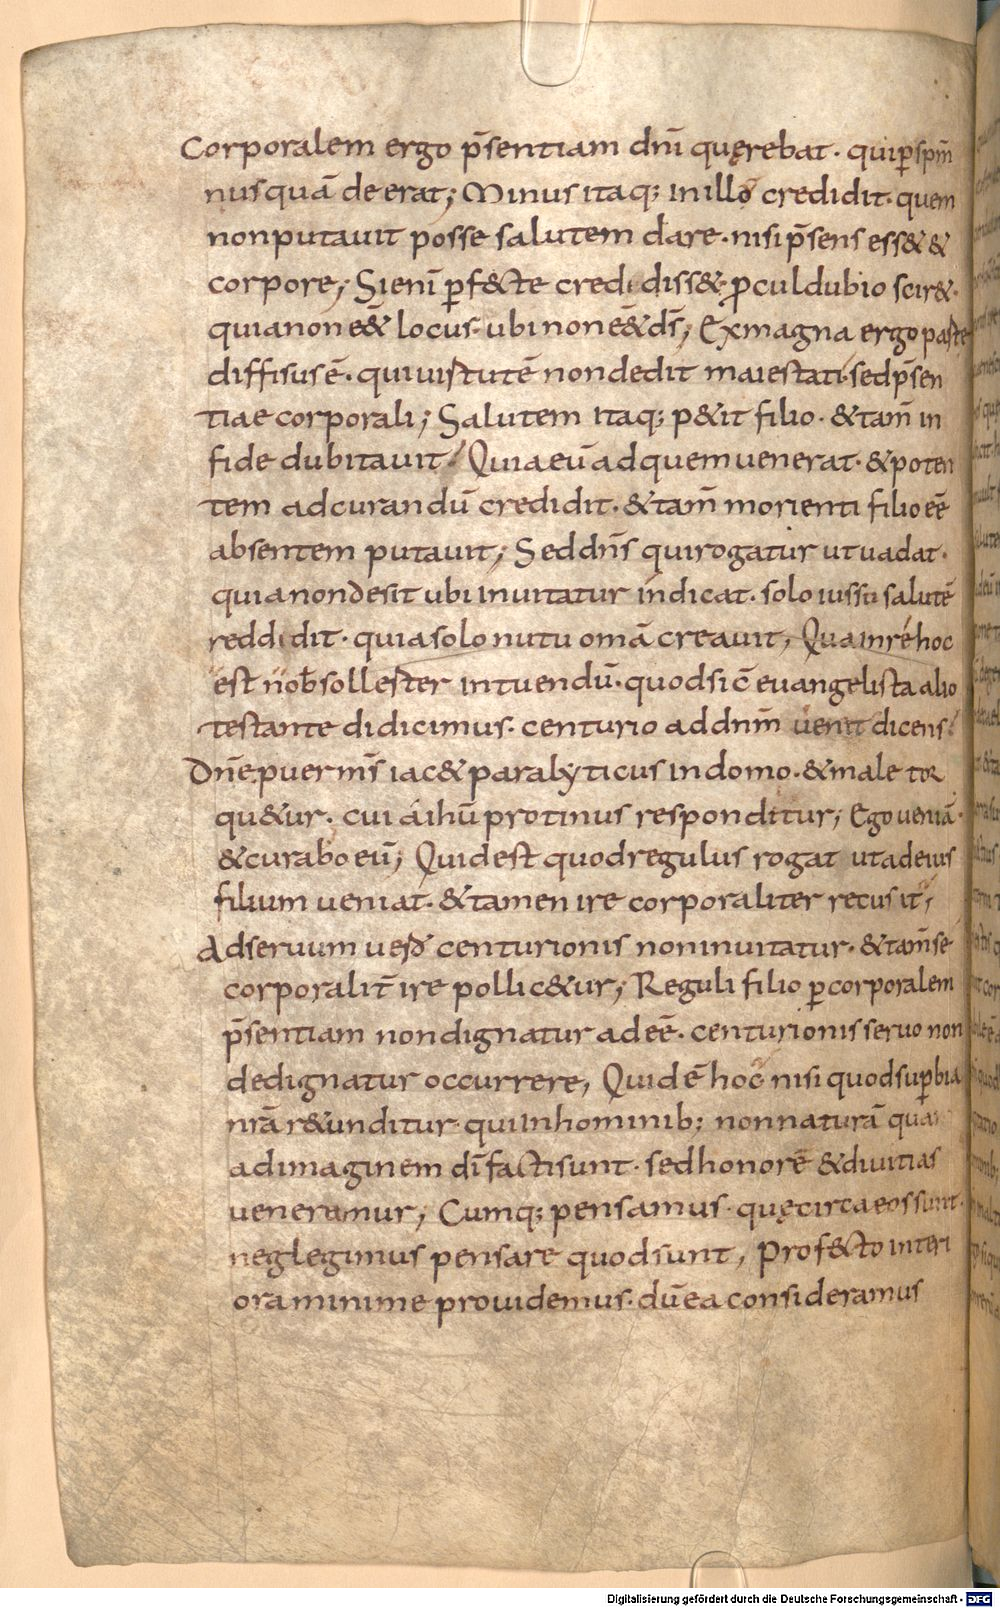 Corporalem ergo p̄sentiam dn̄i quęrebat · qui ꝑ sp̄m
nusquā deerat; Minus itaq; in illo credidit · quem
non putavit posse salutem dare · nisi p̄sens ess& &
corpore; Si eni̅ ꝑf&cte credidiss& · ꝓculdubio scir& ·
quia non eē& locus · ubi non eē& ds̄; Ex magna ergo parte
diffisus ē · qui virtutē non dedit maiestati · sed p̄sen
tiae corporali; Salutem itaq; p&it filio · & tam̄ in
fide dubitavit; Quia eū ad quem venerat · & poten
tem ad curandū credidit · & tam̄ morienti filio eē
absentem putavit; Sed dn̄s qui rogatur ut vadat ·
quia non desit ubi invitatur indicat · solo iussu salutē
reddidit · quia solo nutu om̄a creavit; Qua in re hoc
est nob̄ sollester intuendū · quod sic̄ evangelista alio
testante didicimus · centurio ad dnm̄ venit dicens
Dn̄e puer m̄s iac& paralyticus in domo · & male tor
qu&ur · cui a ihū protinus respondi tur; Ego veniā ·
& curabo eū; Quid est quod regulus rogat ut ad eius
filium veniat · & tamen ire corporaliter recusit;
Ad servum vero centurionis non invitatur · & tam̄ se
corporalit̄ ire pollic&ur; Reguli filio ꝑ corporalem
p̄sentiam non dignatur adeē · centurionis servo non
dedignatur occurrere; Quid ē hoc nisi quod suꝑbia
nr̄a r&unditur · qui in hominib; non naturā qua
ad imaginem dī facti sunt · sed honorē & divitias
veneramur; Cumq; pensamus · quę circa eos sunt ·
neglegimus pensare quod sunt; Prof&cto interi
ora minime providemus · dū ea consideramus
Digitalisierung gefördert durch die Deutsche Forschungsgemeinschaft - DFG